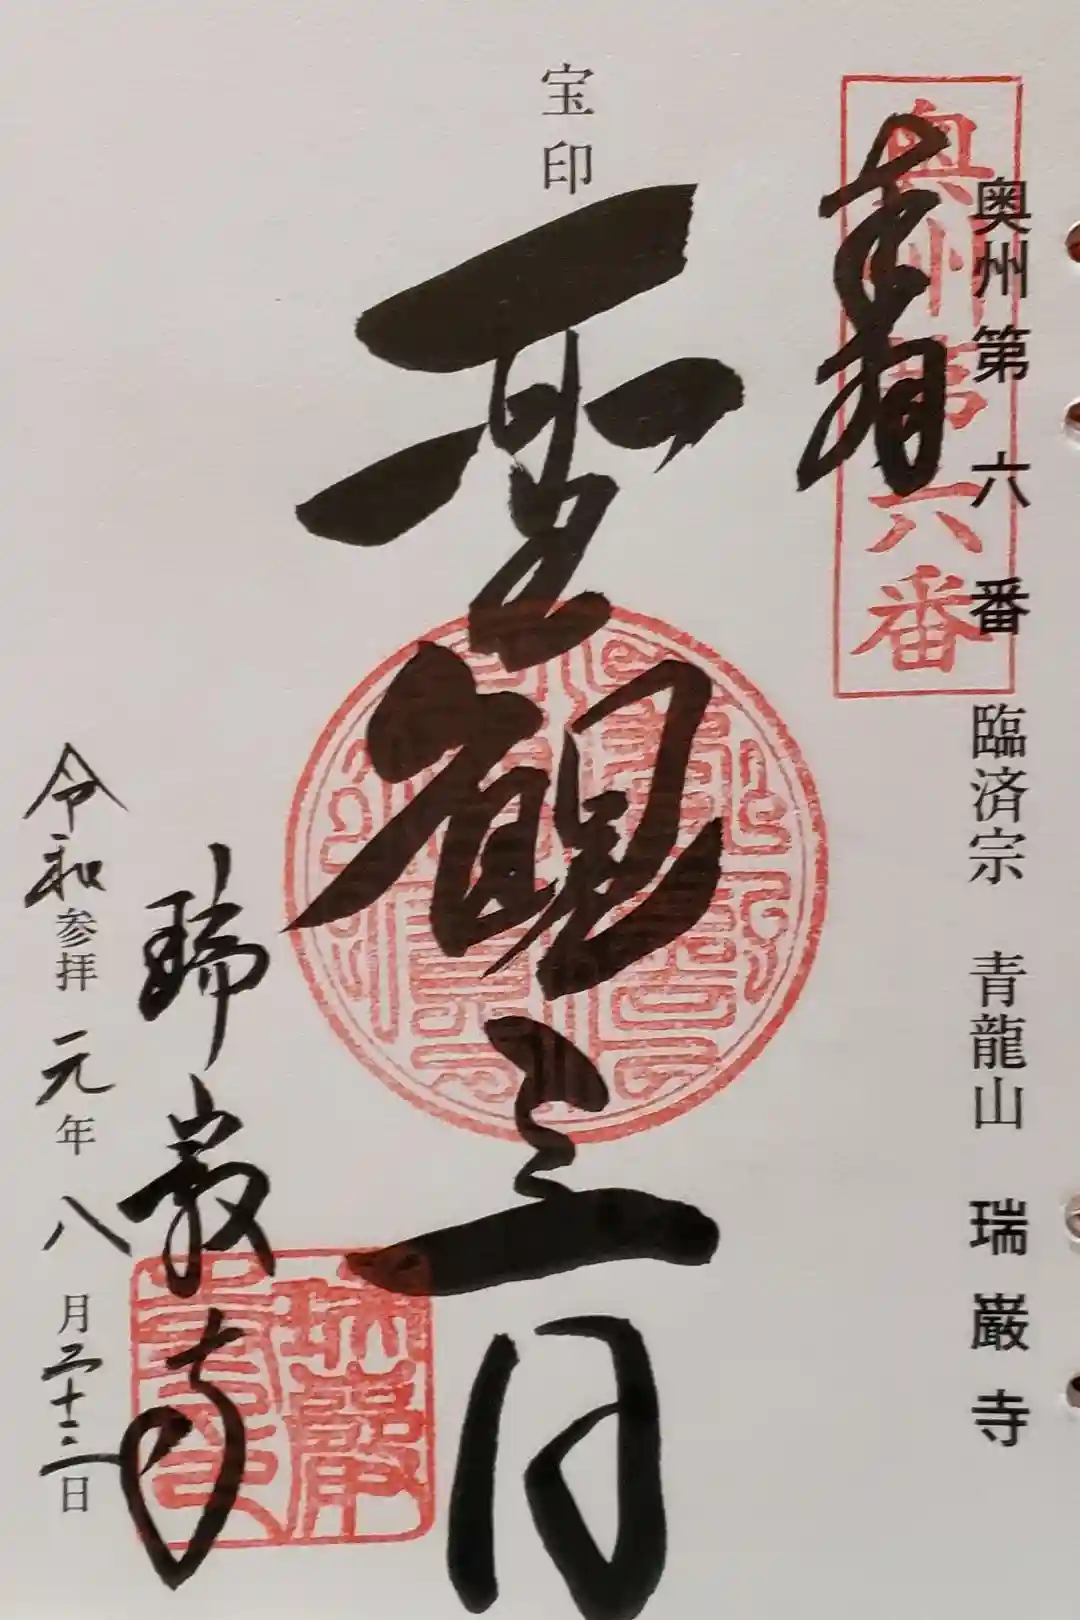 奥州第六番 臨済宗 青龍山 瑞巌寺
奥州第六番
奉拝
宝印
聖観三月
瑞巌寺
瑞巌
令和参拝元年八月二十三日